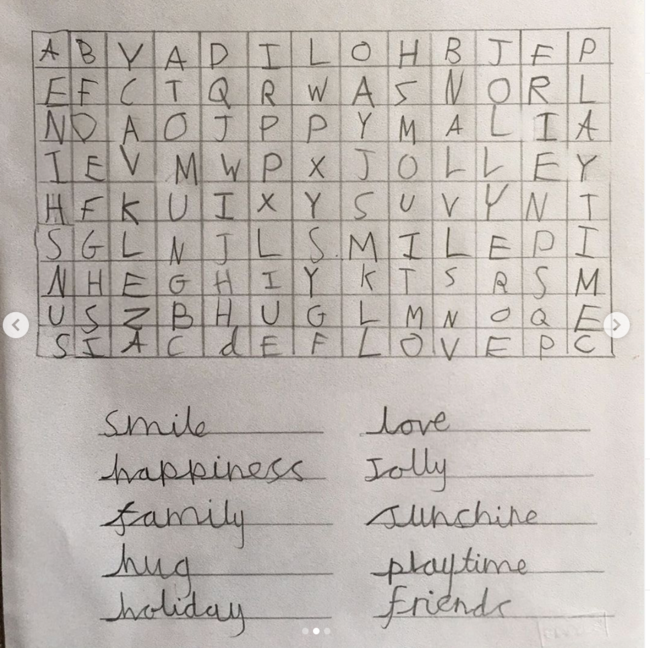 A B Y A D I L O H B J F P
E F C T Q R W A S N O R L
N D A O J P P Y M A L I A
I E V M W P X J O L L E Y
H F K U I X Y S U V Y N T
S G L N J L S M I L E D I
N H E G H I Y K T S R S M
U S Z B H U G L M N O Q E
S I A C d E F L O V E P C
smile love
happiness Jolly
family sunshine
hug playtime
holiday friends